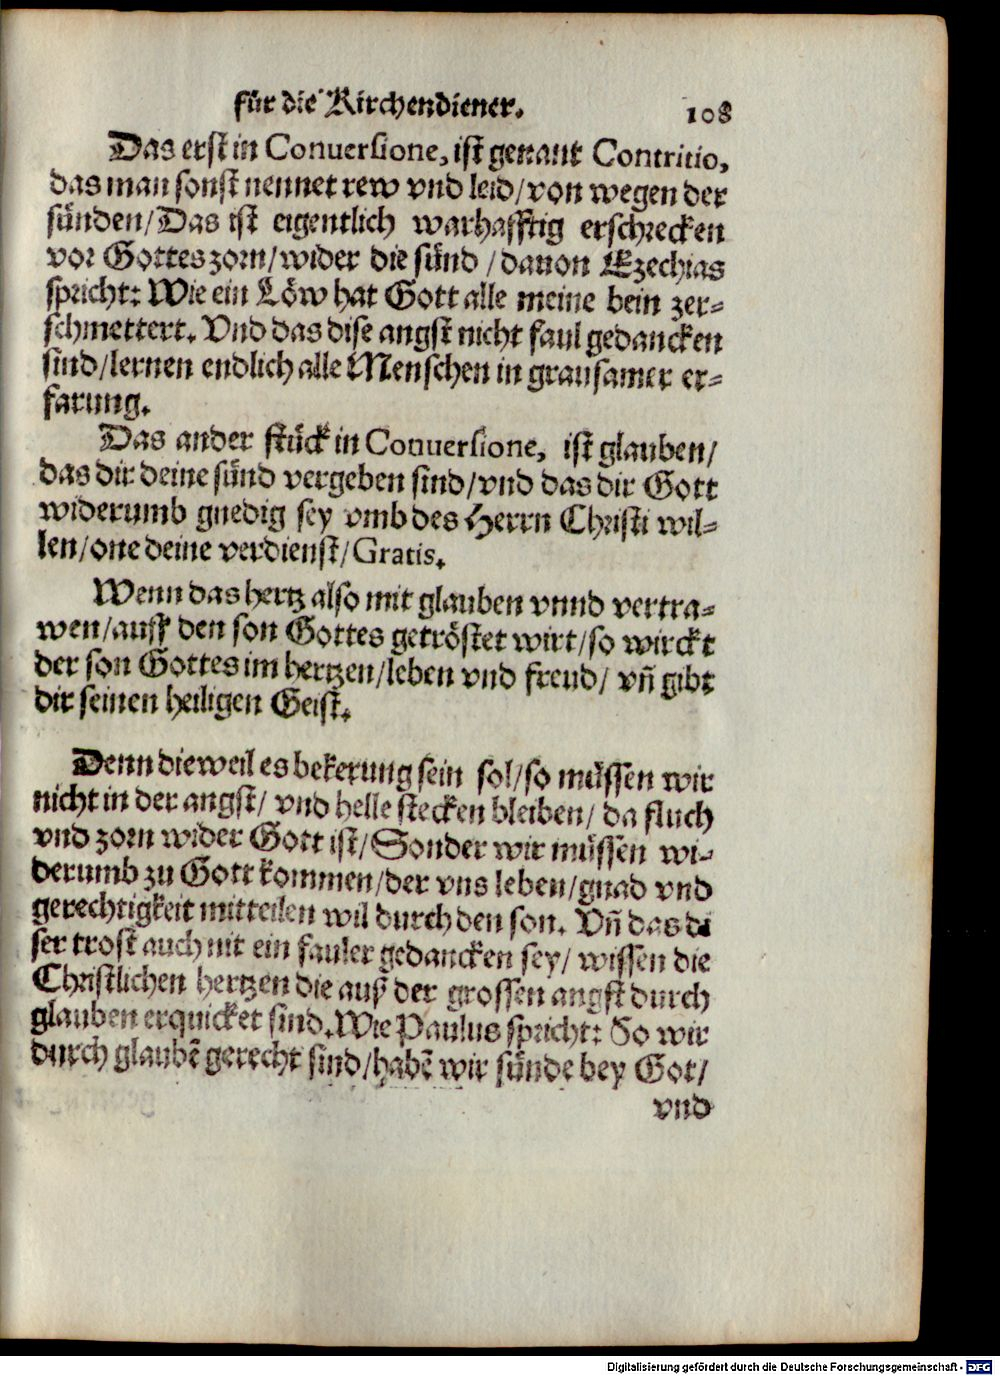 für die Kirchendiener. 108
Das erst in Conuersione, ist genant Contritio,
das man sonst nennet rew vnd leid/von wegen der
sünden/Das ist eigentlich warhafftig erschrecken
vor Gottes zorn/wider die sünd /dauon Ezechias
spricht: Wie ein Löw hat Gott alle meine bein zer-
schmettert. Vnd das dise angst nicht faul gedancken
sind/lernen endlich alle Menschen in grausamer er-
farung.
Das ander stück in Conuersione, ist glauben/
das dir deine sünd vergeben sind/vnd das dir Gott
widerumb gnedig sey vmb des Herrn Christi wil-
len/one deine verdienst/Gratis.
Wenn das hertz also mit glauben vnnd vertra-
wen/auff den son Gottes getröstet wirt/so wirckt
der son Gottes im hertzen/leben vnd freud/ vñ gibt
dir seinen heiligen Geist.
Denn dieweil es bekerung sein sol/so müssen wir
nicht in der angst/ vnd helle stecken bleiben/ da fluch
vnd zorn wider Gott ist/Sonder wir müssen wi-
derumb zu Gott kommen/der vns leben/gnad vnd
gerechtigkeit mitteilen wil durch den son. Vñ das di
ser trost auch nit ein fauler gedancken sey/ wissen die
Christlichen hertzen die auß der grossen angst durch
glauben erquicket sind.Wie Paulus spricht: So wir
durch glaubẽ gerecht sind/habẽ wir sünde bey Got/
vnd
Digitalisierung gefördert durch die Deutsche Forschungsgemeinschaft - DFG